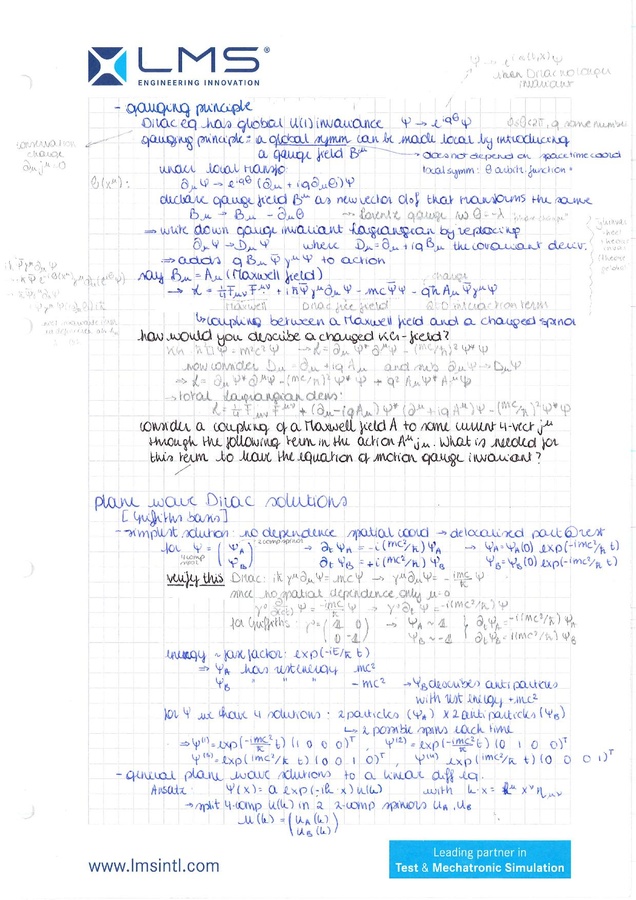 LMS®
ENGINEERING INNOVATION
then Dirac no longer
invariant
- gauging principle
Dirac eq has global U(1) invariance Ψ → e^{iqθ} Ψ 0≤θ<2π, q same number
gauging principle = a global symm can be made local by introducing
a gauge field B^μ → does not depend on spacetime coord
local symm: θ arbitr. function
conservation
charge
∂_μ j^μ = 0
θ(x^μ):
under local transfo
∂_μ Ψ → e^{iqθ} (∂_μ + iq∂_μθ)Ψ
declare gauge field B^μ as new vector dof that transforms the same
B_μ → B_μ - ∂_μθ
⇒ write down gauge invariant lagrangian by replacing
∂_μ Ψ → D_μ Ψ where D_μ = ∂_μ + iqB_μ the covariant deriv.
⇒ adds q B_μ Ψ̄ γ^μ Ψ to action
say B_μ = A_μ (Maxwell field) charge
→ L = 1/4 F_μν F^μν + iħ Ψ̄ γ^μ ∂_μ Ψ - mc Ψ̄Ψ - qħ A_μ Ψ̄ γ^μ Ψ
Maxwell Dirac free field QED interaction term
↳ coupling between a Maxwell field and a charged spinor
how would you describe a charged KG-field?
now consider D_μ = ∂_μ + iq A_μ and sub ∂_μΨ → D_μΨ
→ L = ∂_μ Ψ* ∂^μ Ψ - (mc/ħ)² Ψ*Ψ + q² A_μ Ψ* A^μ Ψ
→ total lagrangian dens:
L = 1/4 F_μν F^μν + (∂_μ - iqA_μ) Ψ* (∂^μ + iq A^μ) Ψ - (mc/ħ)² Ψ*Ψ
consider a coupling of a Maxwell field A to some current 4-vect j^μ
through the following term in the action A^μ j_μ. What is needed for
this term to leave the equation of motion gauge invariant?
plane wave Dirac solutions
[Griffiths basis]
- simplest solution: no dependence spatial coord → delocalised part @ rest
for Ψ = (Ψ_A Ψ_B) 2 comp spinors → ∂_t Ψ_A = -i(mc²/ħ) Ψ_A → Ψ_A = Ψ_A(0) exp(-imc²/ħ t)
4 comp spinor ∂_t Ψ_B = +i(mc²/ħ) Ψ_B Ψ_B = Ψ_B(0) exp(imc²/ħ t)
verify this Dirac: iħ γ^μ ∂_μ Ψ = mc Ψ → γ^μ ∂_μ Ψ = -imc/ħ Ψ
since no spatial dependence, only μ=0
γ⁰ ∂/∂(ct) Ψ = -imc/ħ Ψ → γ⁰ ∂_t Ψ = -i(mc²/ħ) Ψ
for Griffiths: γ⁰ = (1 0 0 -1) → Ψ_A ~ 1 Ψ_B ~ -1 } ∂_tΨ_A = -i(mc²/ħ) Ψ_A ∂_tΨ_B = i(mc²/ħ) Ψ_B
energy ~ fase factor: exp(-iE/ħ t)
⇒ Ψ_A has rest energy mc²
Ψ_B " " " -mc² → Ψ_B describes antiparticles
with rest energy +mc²
for Ψ we have 4 solutions: 2 particles (Ψ_A) x 2 antiparticles (Ψ_B)
↳ 2 possible spins each time
⇒ Ψ^(1) = exp(-imc²/ħ t) (1 0 0 0)^T, Ψ^(2) = exp(-imc²/ħ t) (0 1 0 0)^T
Ψ^(3) = exp(imc²/ħ t) (0 0 1 0)^T, Ψ^(4) = exp(imc²/ħ t) (0 0 0 1)^T
- general plane wave solutions to a linear diff eq.
Ansatz: Ψ(x) = a exp(-ik·x) u(k) with k·x = k^μ x^ν η_μν
→ split 4-comp u(k) in 2 2-comp spinors u_A, u_B
u(k) = (u_A(k) u_B(k))
www.lmsintl.com
Leading partner in
Test & Mechatronic Simulation